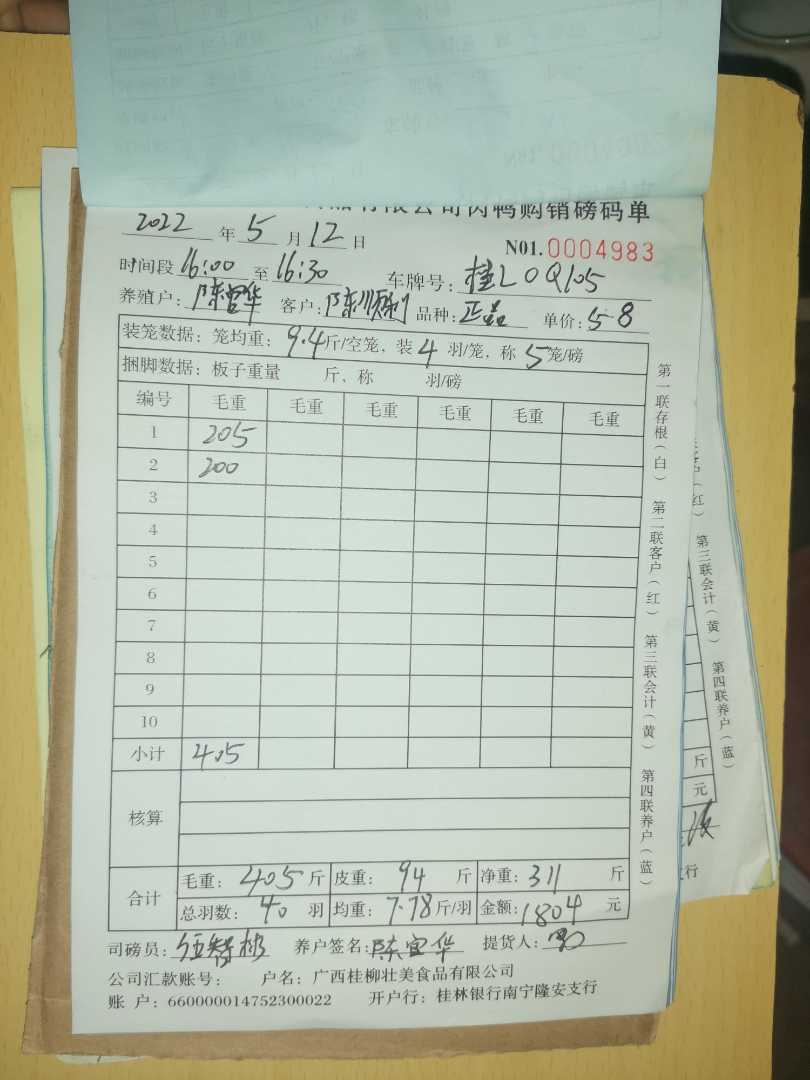 有限公司肉鸭购销磅码单
2022 年 5 月 12 日
N01. 0004983
时间段 16:00 至 16:30 车牌号: 桂L0Q105
养殖户: 陈宜华 客户: 陈顺利 品种: 正品 单价: 5.8
装笼数据: 笼均重: 9.4 斤/空笼, 装 4 羽/笼, 称 5 笼/磅
捆脚数据: 板子重量 斤, 称 羽/磅
编号 毛重 毛重 毛重 毛重 毛重 毛重
1 205
2 200
3
4
5
6
7
8
9
10
小计 405
核算
合计 毛重: 405 斤 皮重: 94 斤 净重: 311 斤
总羽数: 40 羽 均重: 7.78 斤/羽 金额: 1804 元
司磅员: 养户签名: 陈宜华 提货人:
公司汇款账号: 户名: 广西桂柳壮美食品有限公司
账 户: 660000014752300022 开户行: 桂林银行南宁隆安支行
第一联存根(白) 第二联客户(红) 第三联会计(黄) 第四联养户(蓝)
(红) 第三联会计(黄) 第四联养户(蓝)
斤
元
行